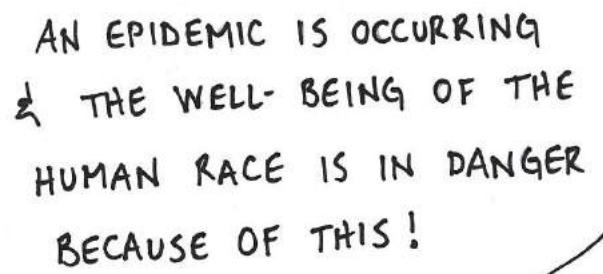 AN EPIDEMIC IS OCCURRING
& THE WELL-BEING OF THE
HUMAN RACE IS IN DANGER
BECAUSE OF THIS!